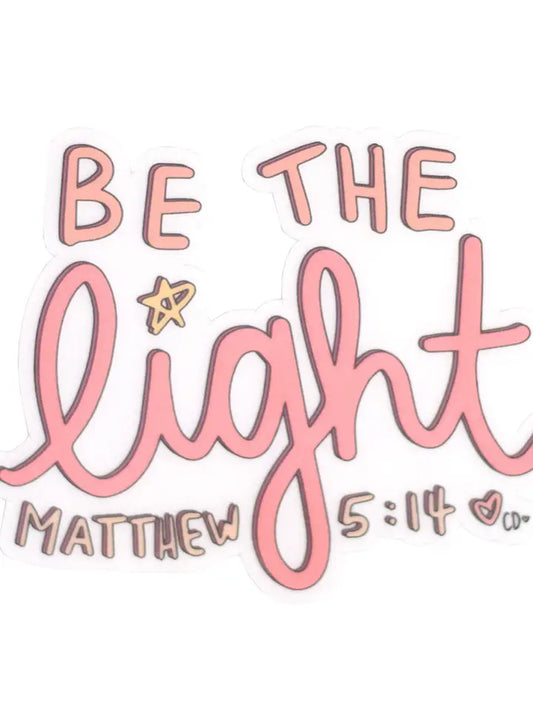 BE THE
light
MATTHEW 5:14 CD.